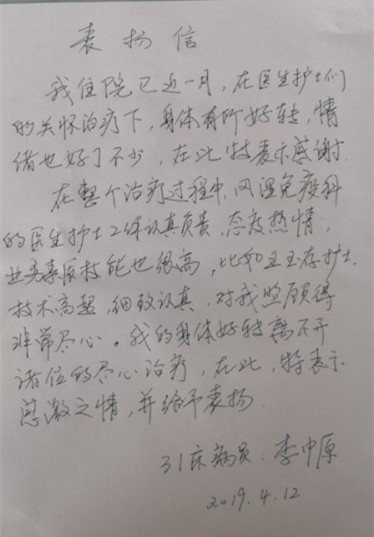 表扬信
我住院已近一月，在医生护士们
的关怀治疗下，身体有所好转，情
绪也好了不少，在此特表示感谢.
在整个治疗过程中，风湿免疫科
的医生护士工作认真负责，态度热情，
业务素质技能也很高，比如王玉存护士.
技术高超，细致认真，对我照顾得
非常尽心。我的身体好转离不开
诸位的尽心治疗，在此，特表示
感激之情，并给予表扬
31床病员：李中原
2019.4.12